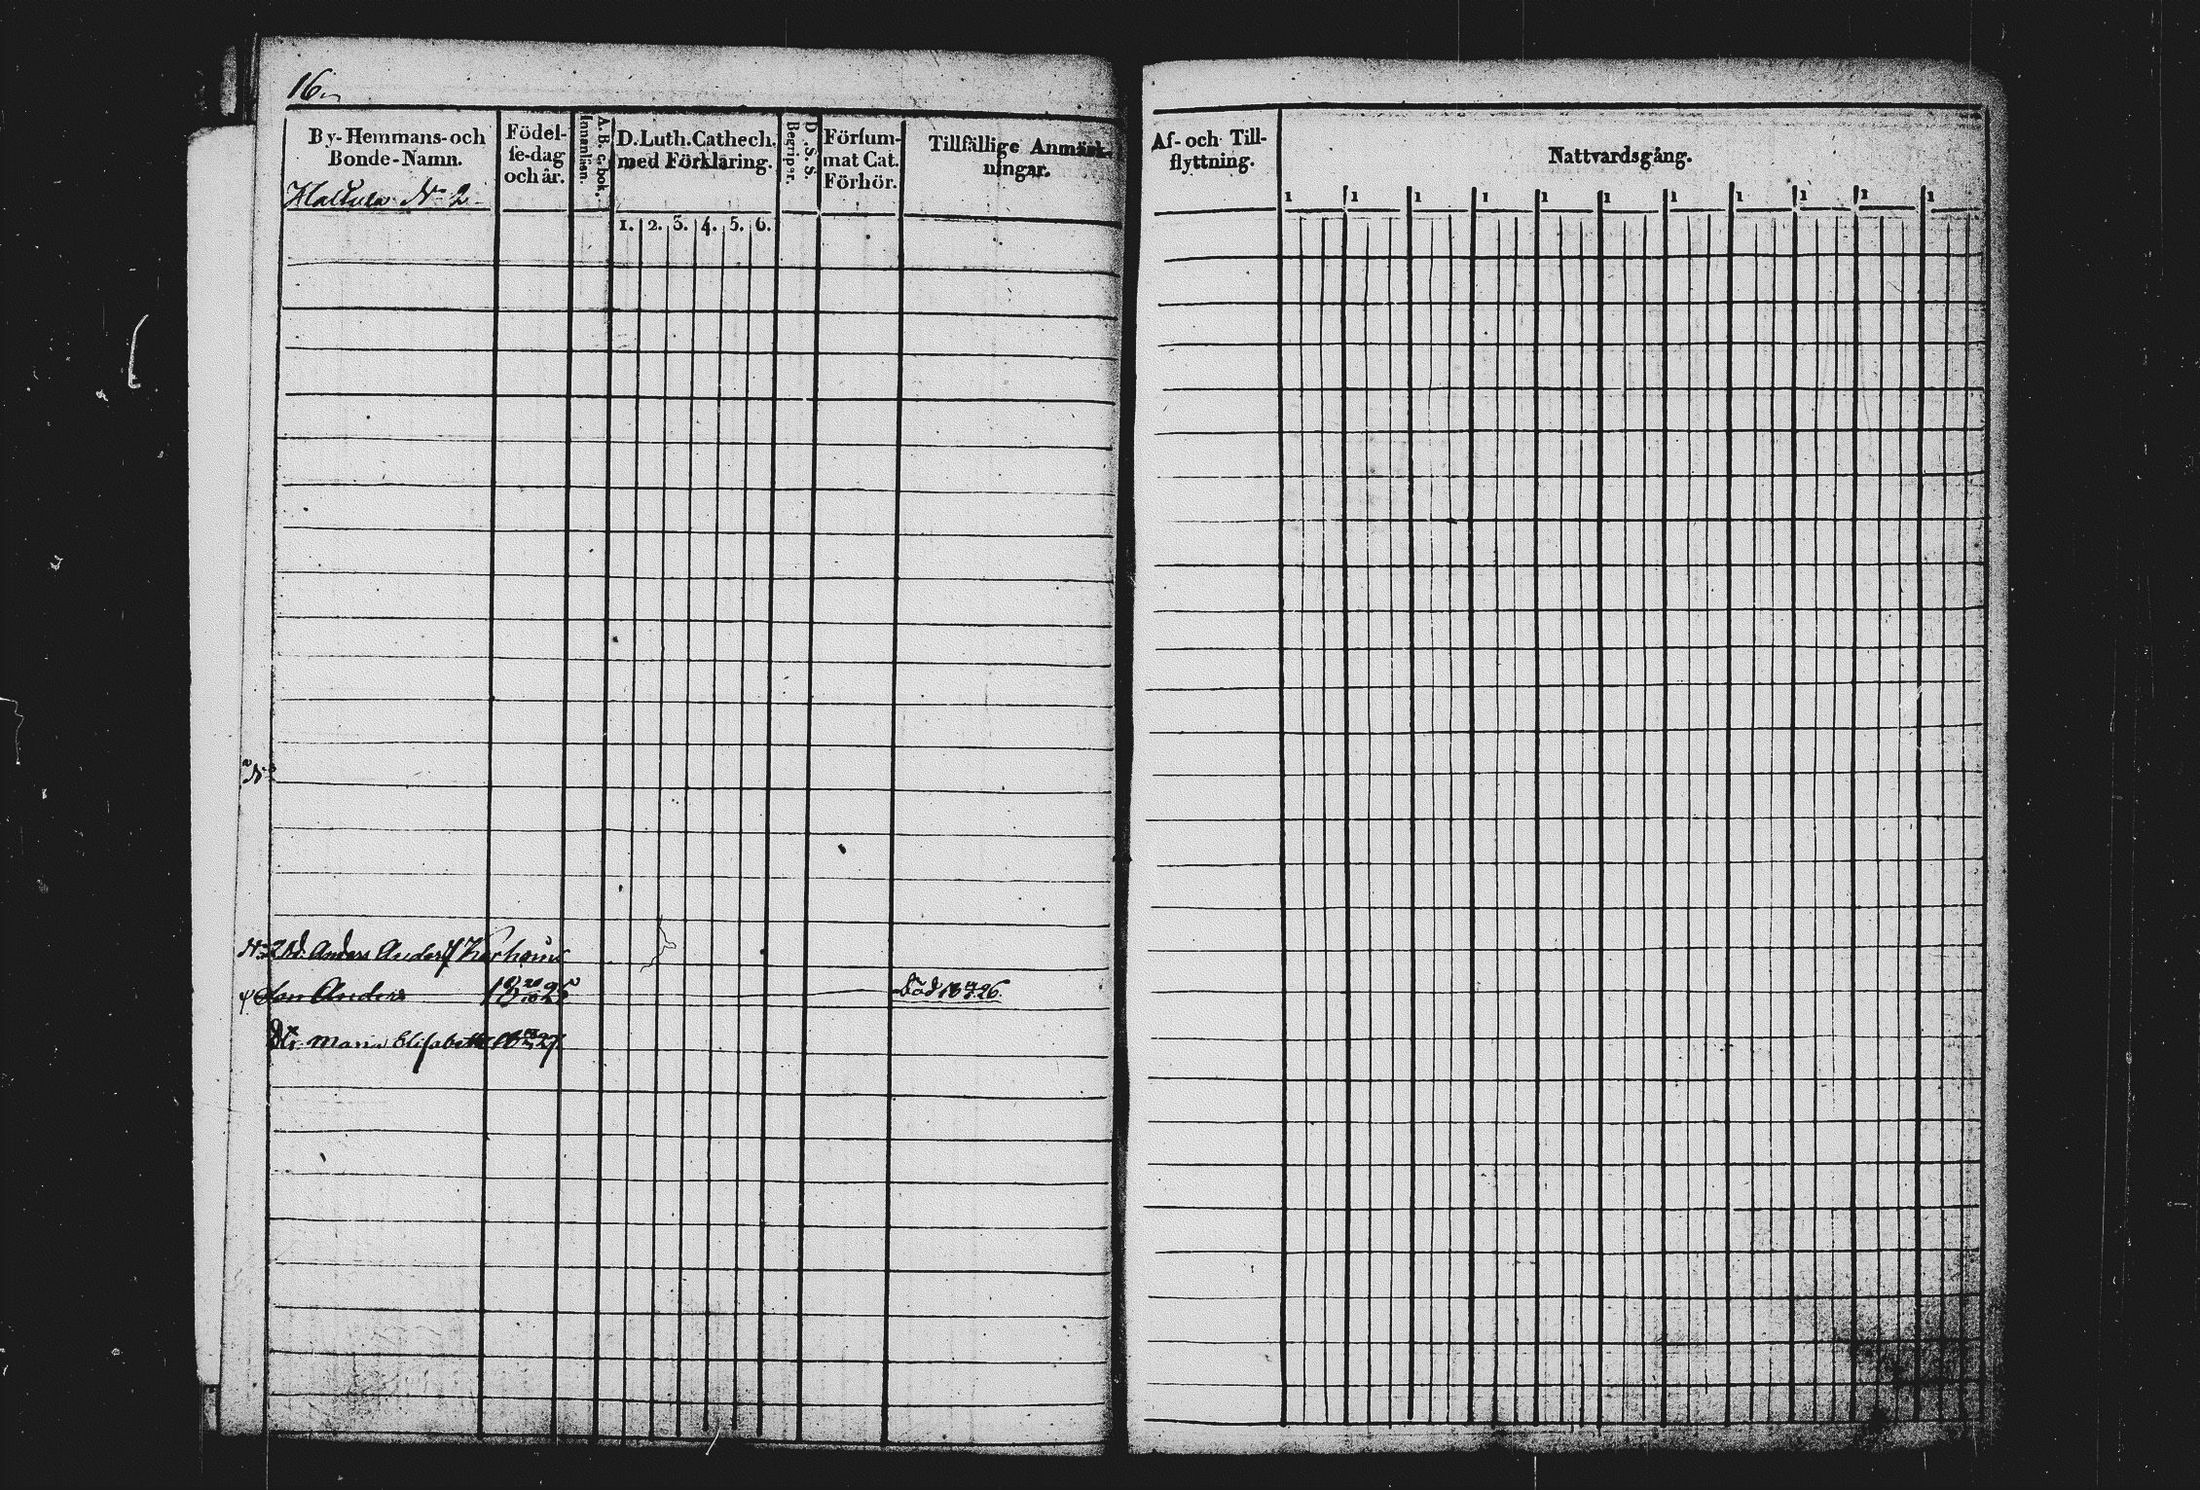 16.
By-Hemmans-och
Bonde-Namn.
Födel-
se-dag
och år.
A. B. C. bok.
Innanläsn.
D. Luth. Cathech.
med Förklaring.
D. S. S.
Begriper.
Försum-
mat Cat.
Förhör.
Tillfällige Anmärk-
ningar.
No 2
1. 2. 3. 4. 5. 6.
No 2 Anders Anders
Son Anders 18 20/10 25 Död 18 26.
Dtr. Maria Elisabeth 27
Af- och Till-
flyttning.
Nattvardsgång.
1 1 1 1 1 1 1 1 1 1 1